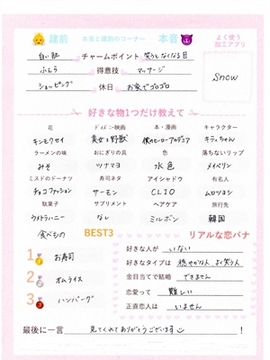 建前 本音と建前のコーナー 本音 よく使う加工アプリ
白い肌 チャームポイント 笑うとなくなる目
ふしぎ 得意技 マッサージ
ショッピング 休日 お家でゴロゴロ
Snow
好きな物1つだけ教えて
花 ドラメン映画 本・漫画 キャラクター
キンモクセイ 美女と野獣 僕のヒーローアカデミア キティちゃん
ラーメンの味 おにぎりの具 色 落ちないリップ
みそ ツナマヨ 水色 メイベリン
ミスドのドーナツ 寿司ネタ アイシャドウ 有名人
チョコファッション サーモン CLIO ムロツヨシ
駄菓子 サプリメント ヘアケア 旅行先
ウメトラハニー なし ミルボン 韓国
食べもの BEST3 リアルな恋バナ
1 お寿司
2 オムライス
3 ハンバーグ
好きな人が いない
好きなタイプは よく笑う人
金目当てで結婚 できません
恋愛って 難しい
正直恋人は いません
最後に一言 見てくれてありがとうございます !